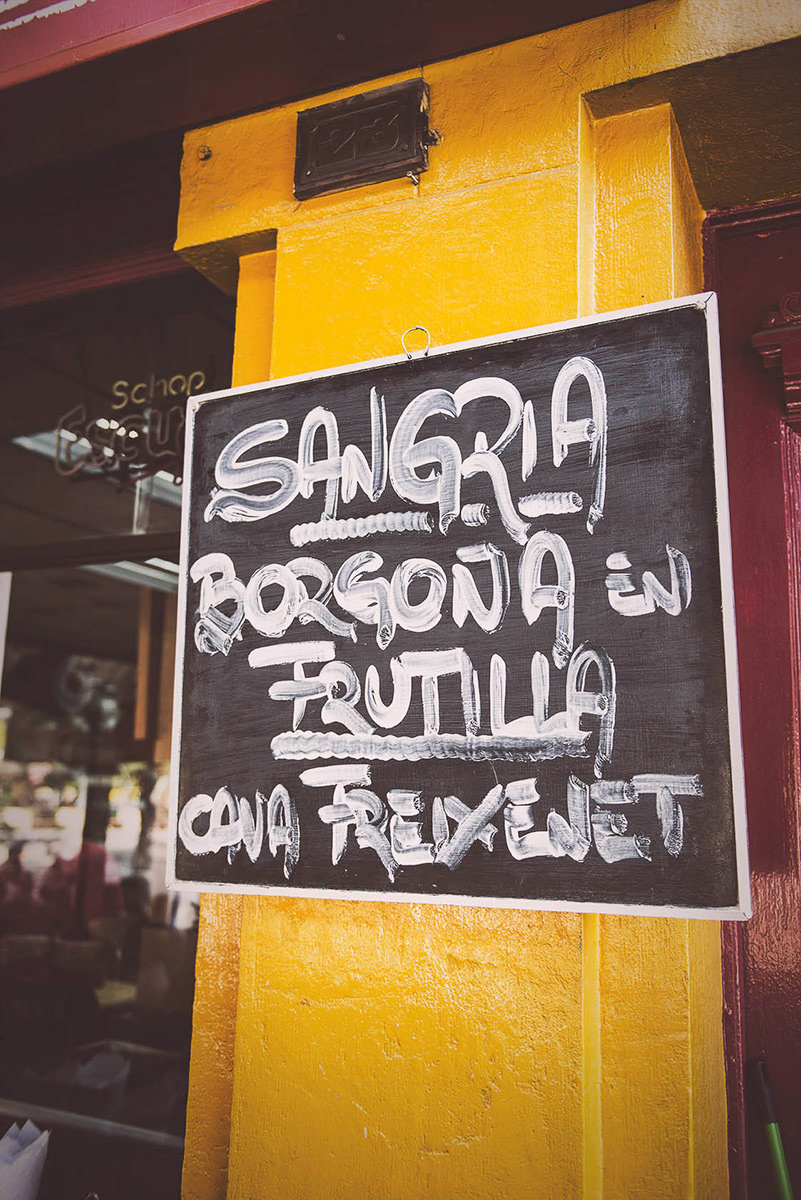 213
Schop
SANGRIA
BORGOÑA EN
FRUTILLA
CAVA FREIXENET